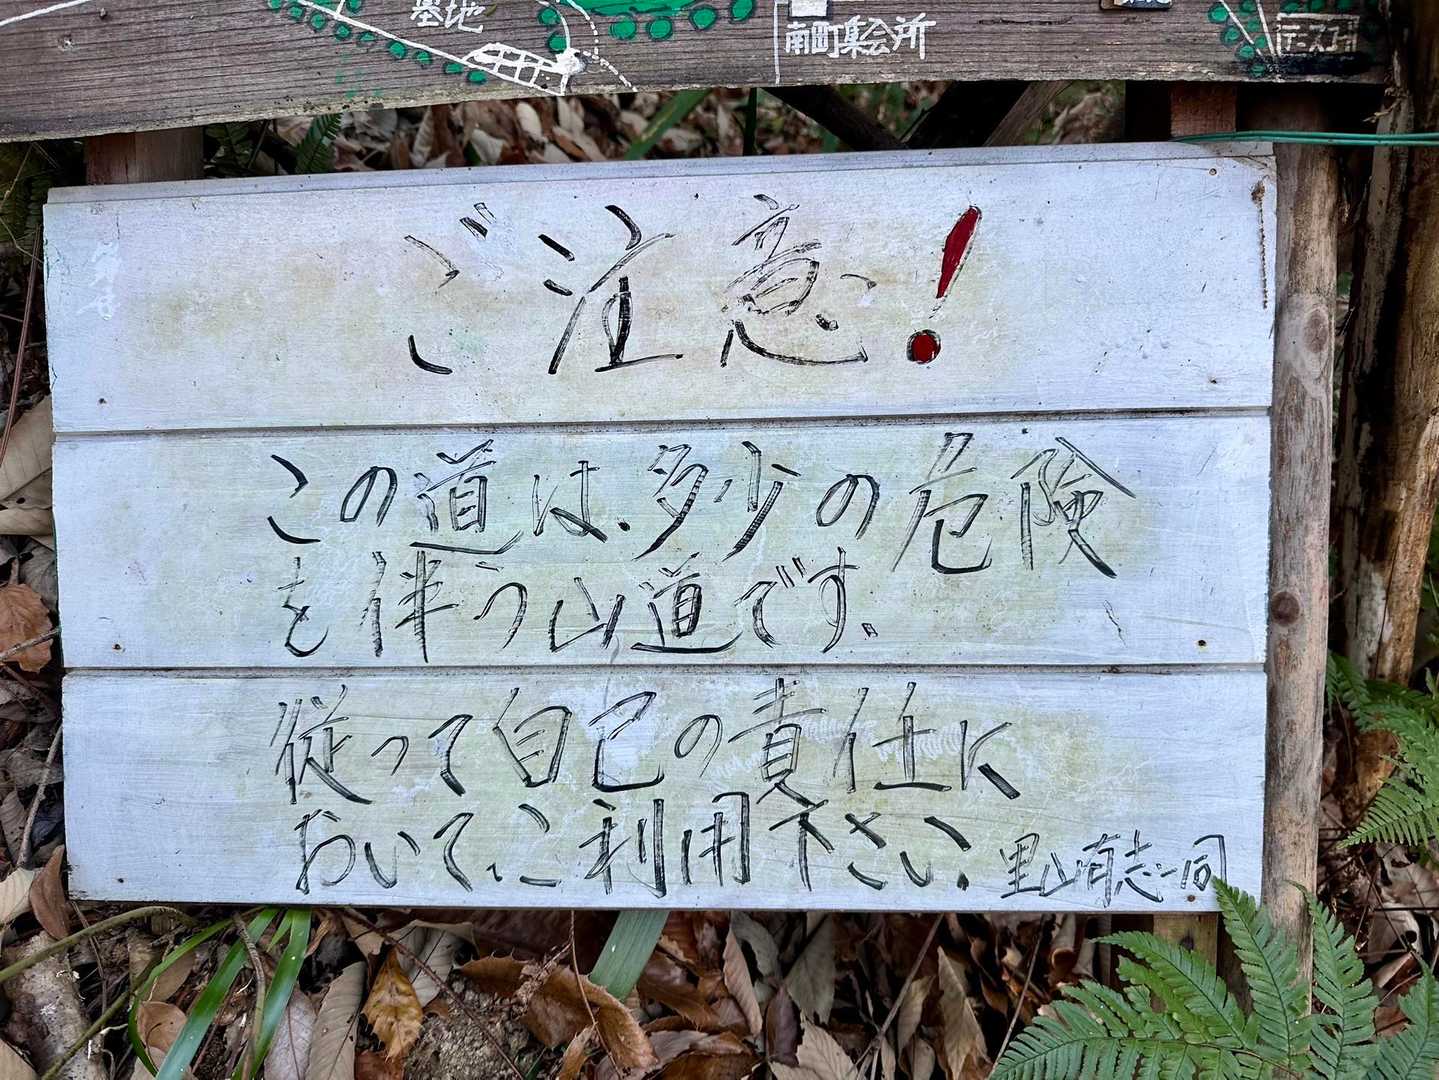 墓地
南町集会所
テニスコート
ご注意!
この道は、多少の危険
を伴う山道です。
従って自己の責任に
おいて、ご利用下さい。
里山有志一同